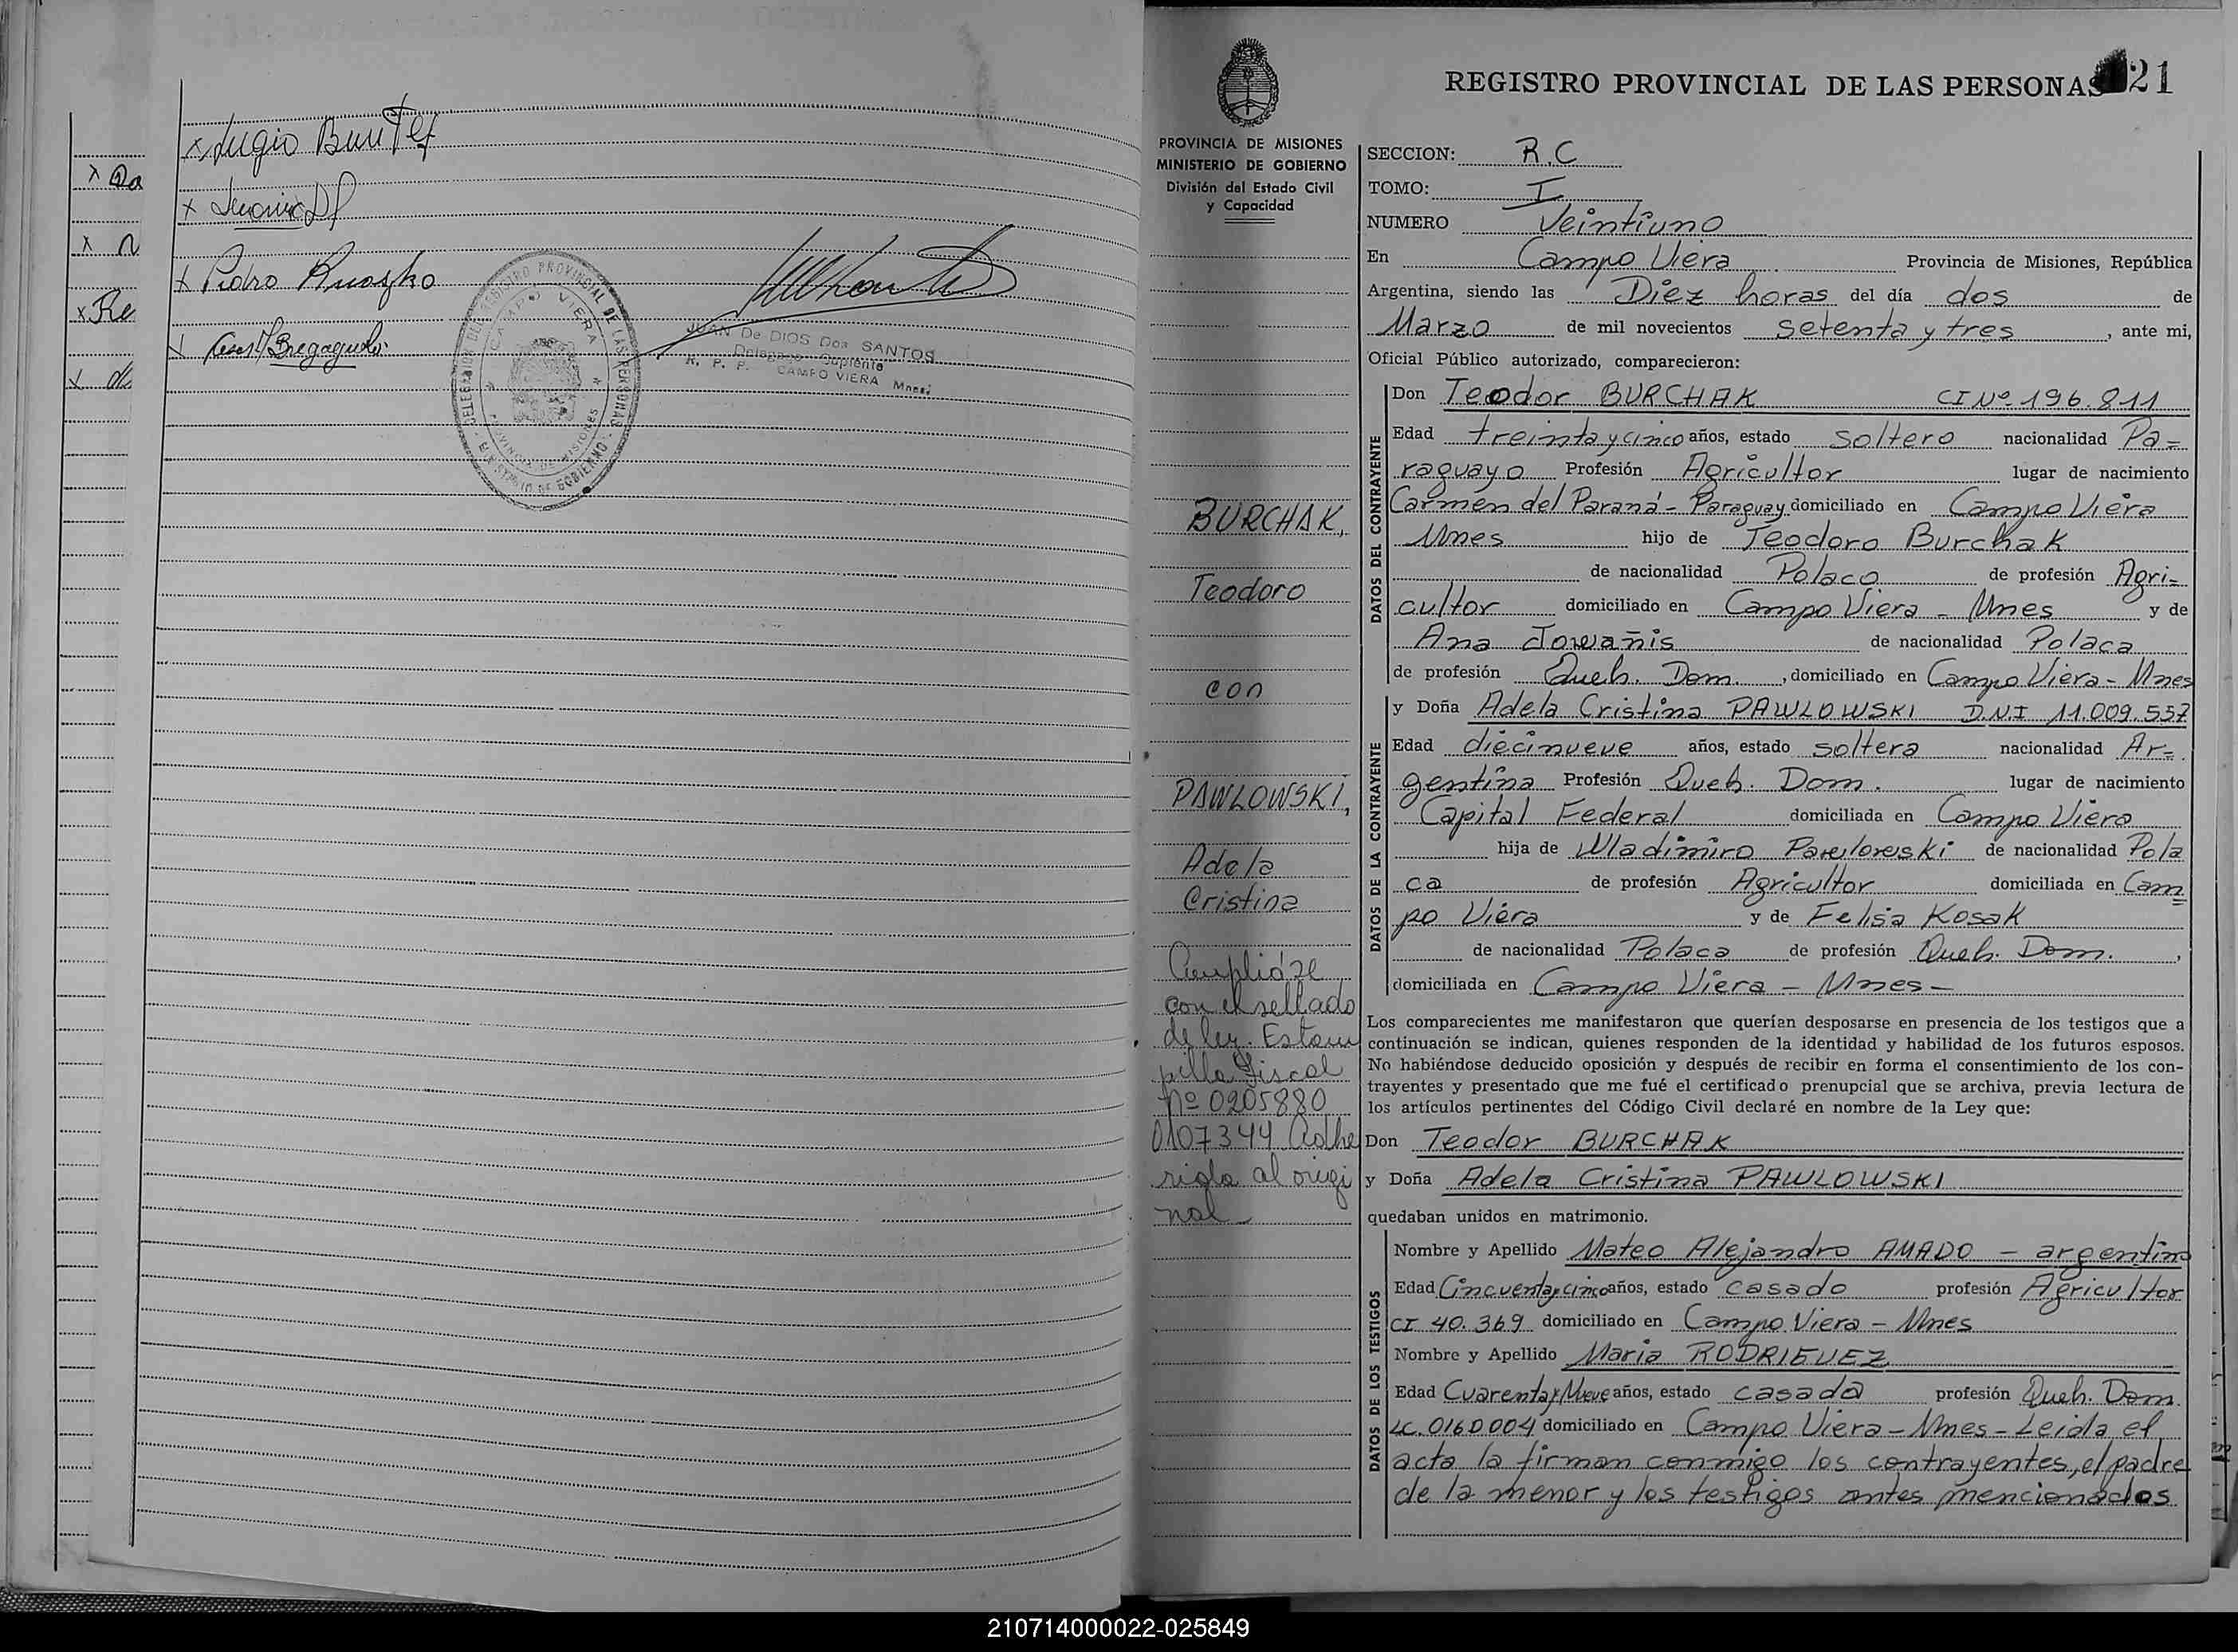 x Lugio
x
x Pedro
JUAN De DIOS Dos SANTOS
Delegado Suplente
R. P. P. CAMPO VIERA Mnes.
DELEGACION DEL REGISTRO PROVINCIAL DE LAS PERSONAS
CAMPO VIERA
PROVINCIA DE MISIONES
MINISTERIO DE GOBIERNO
REGISTRO PROVINCIAL DE LAS PERSONAS 21
PROVINCIA DE MISIONES
MINISTERIO DE GOBIERNO
División del Estado Civil
y Capacidad
BURCHAK,
Teodoro
con
PAWLOWSKI,
Adela
Cristina
Cumplióse
con el sellado
de ley. Estam
pilla Fiscal
Nº 0205880
0107344 Adhe
rida al origi
nal
SECCION: R.C
TOMO: I
NUMERO Veintiuno
En Campo Viera Provincia de Misiones, República
Argentina, siendo las Diez horas del día dos de
Marzo de mil novecientos setenta y tres, ante mi,
Oficial Público autorizado, comparecieron:
DATOS DEL CONTRAYENTE
Don Teodor BURCHAK CI Nº 196.811
Edad treinta y cinco años, estado soltero nacionalidad Pa=
raguayo Profesión Agricultor lugar de nacimiento
Carmen del Paraná - Paraguay domiciliado en Campo Viera
Mnes hijo de Teodoro Burchak
de nacionalidad Polaco de profesión Agri=
cultor domiciliado en Campo Viera - Mnes y de
Ana Jowañis de nacionalidad Polaca
de profesión Queh. Dom., domiciliado en Campo Viera - Mnes
DATOS DE LA CONTRAYENTE
y Doña Adela Cristina PAWLOWSKI D.N.I 11.009.557
Edad diecinueve años, estado soltera nacionalidad Ar=
gentina Profesión Queh. Dom. lugar de nacimiento
Capital Federal domiciliada en Campo Viera
hija de Wladimiro Pawlowski de nacionalidad Pola
ca de profesión Agricultor domiciliada en Cam=
po Viera y de Felisa Kosak
de nacionalidad Polaca de profesión Queh. Dom.,
domiciliada en Campo Viera - Mnes -
Los comparecientes me manifestaron que querían desposarse en presencia de los testigos que a
continuación se indican, quienes responden de la identidad y habilidad de los futuros esposos.
No habiéndose deducido oposición y después de recibir en forma el consentimiento de los con-
trayentes y presentado que me fué el certificado prenupcial que se archiva, previa lectura de
los artículos pertinentes del Código Civil declaré en nombre de la Ley que:
Don Teodor BURCHAK
y Doña Adela Cristina PAWLOWSKI
quedaban unidos en matrimonio.
DATOS DE LOS TESTIGOS
Nombre y Apellido Mateo Alejandro AMADO - argentino
Edad Cincuenta y cinco años, estado casado profesión Agricultor
CI 40.369 domiciliado en Campo Viera - Mnes
Nombre y Apellido Maria RODRIGUEZ
Edad Cuarenta y Nueve años, estado casada profesión Queh. Dom.
LC. 0160004 domiciliado en Campo Viera - Mnes - Leida el
acta la firman conmigo los contrayentes, el padre
de la menor y los testigos antes mencionados
210714000022-025849